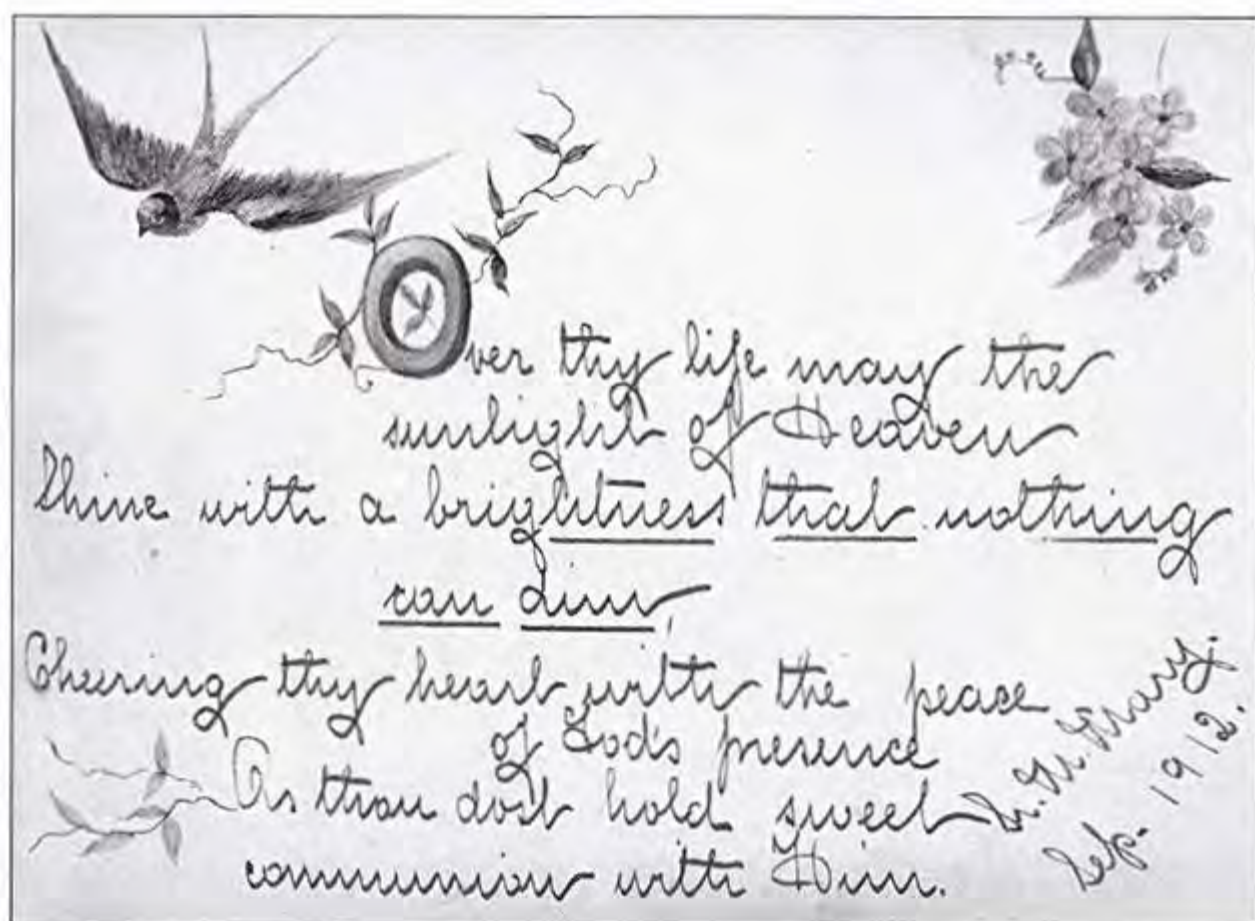 Over thy life may the
sunlight of Heaven
Shine with a brightness that nothing
can dim,
Cheering thy heart with the peace
of God's presence
As thou dost hold sweet
communion with Him.
Sep. 1912.